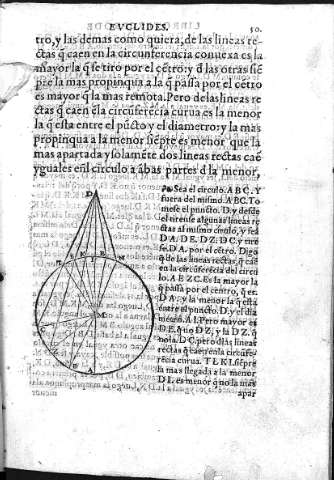 EVCLIDES. 50.
tro, y las demas como quiera, de las lineas re-
ctas q̃ caen en la circunferencia conuexa es la
mayor la q̃ se tiro por el cẽtro: y đ las otras siẽ
pre la mas propinqua a la q̃ passa por el cẽtro
es mayor q̃ la mas remota. Pero de las lineas re
ctas q̃ caen ẽla circũferẽcia curua es la menor
la q̃ esta entre el pũcto y el diametro: y la mas
propinqua a la menor siẽpre es menor que la
mas apartada y solamẽte dos lineas rectas caẽ
yguales en l circulo a ãbas partes đ la menor.
Sea el circulo. A B C. Y
fuera del mismo. A B C. To
mese el puncto. D. y desde
el tirense algunas lineas re
ctas al mismo circulo, y seã
D A. D E. D Z. D C. y tire
se. D A. por el cẽtro. Digo
q̃ de las lineas rectas, q̃ caẽ
en la circunferẽcia del circu
lo. A E Z C. Es la mayor la
q̃ passa por el centro, q̃ es.
D A: y la menor la q̃ esta
entre el puncto. D. y el dia
metro. A I. Pero mayor es
D E. q̃ no D Z, y la D Z. q̃
no la. D C. pero đ las lineas
rectas q̃ caen en la circũfe-
rẽcia curua. T L K I. siẽpre
la mas llegada a la menor
D I. es menor q̃ no la mas
apar
D
M
A